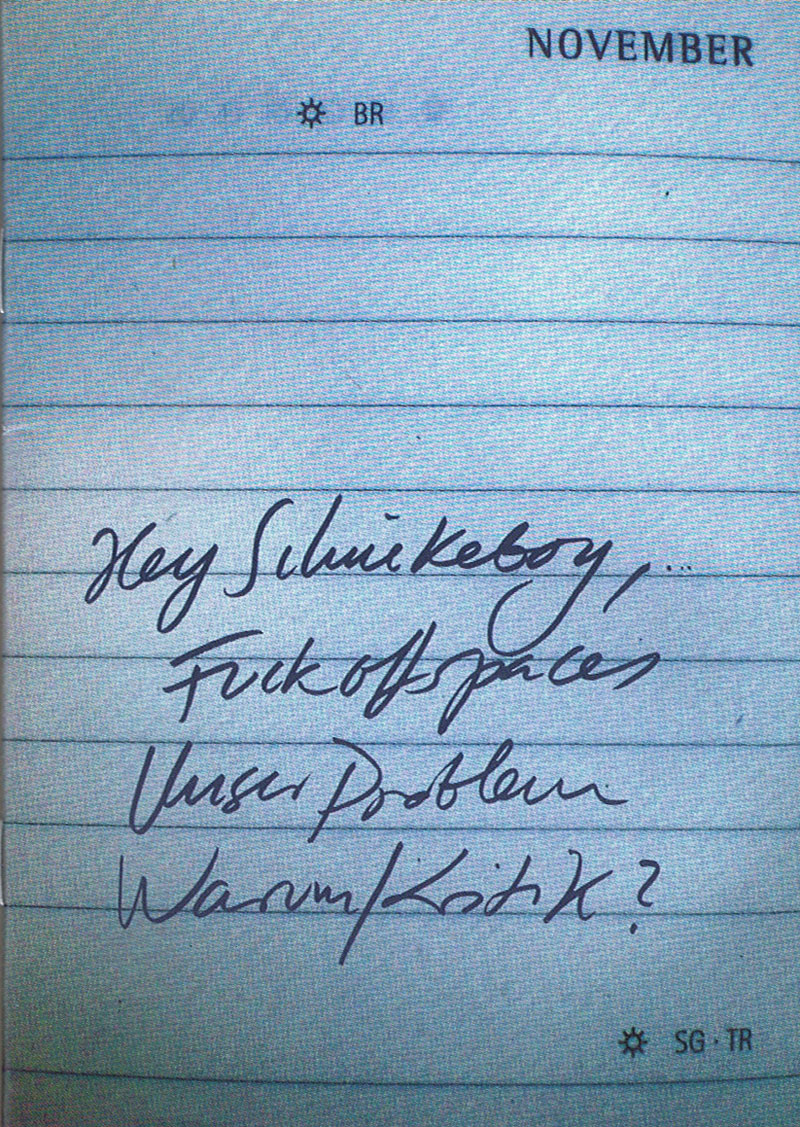 NOVEMBER
BR
Hey Schnickeboy,...
Fuck off spaces
Unser Problem
Warum/Kritik?
SG · TR